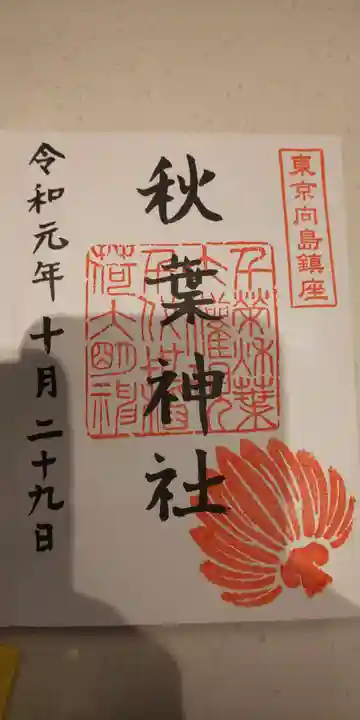 東京向島鎮座
秋葉神社
令和元年十月二十九日